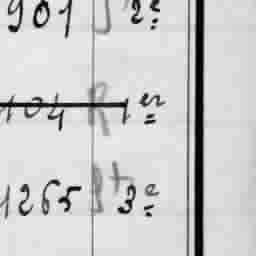 901 2e
104 R 1er
1265 St 3e